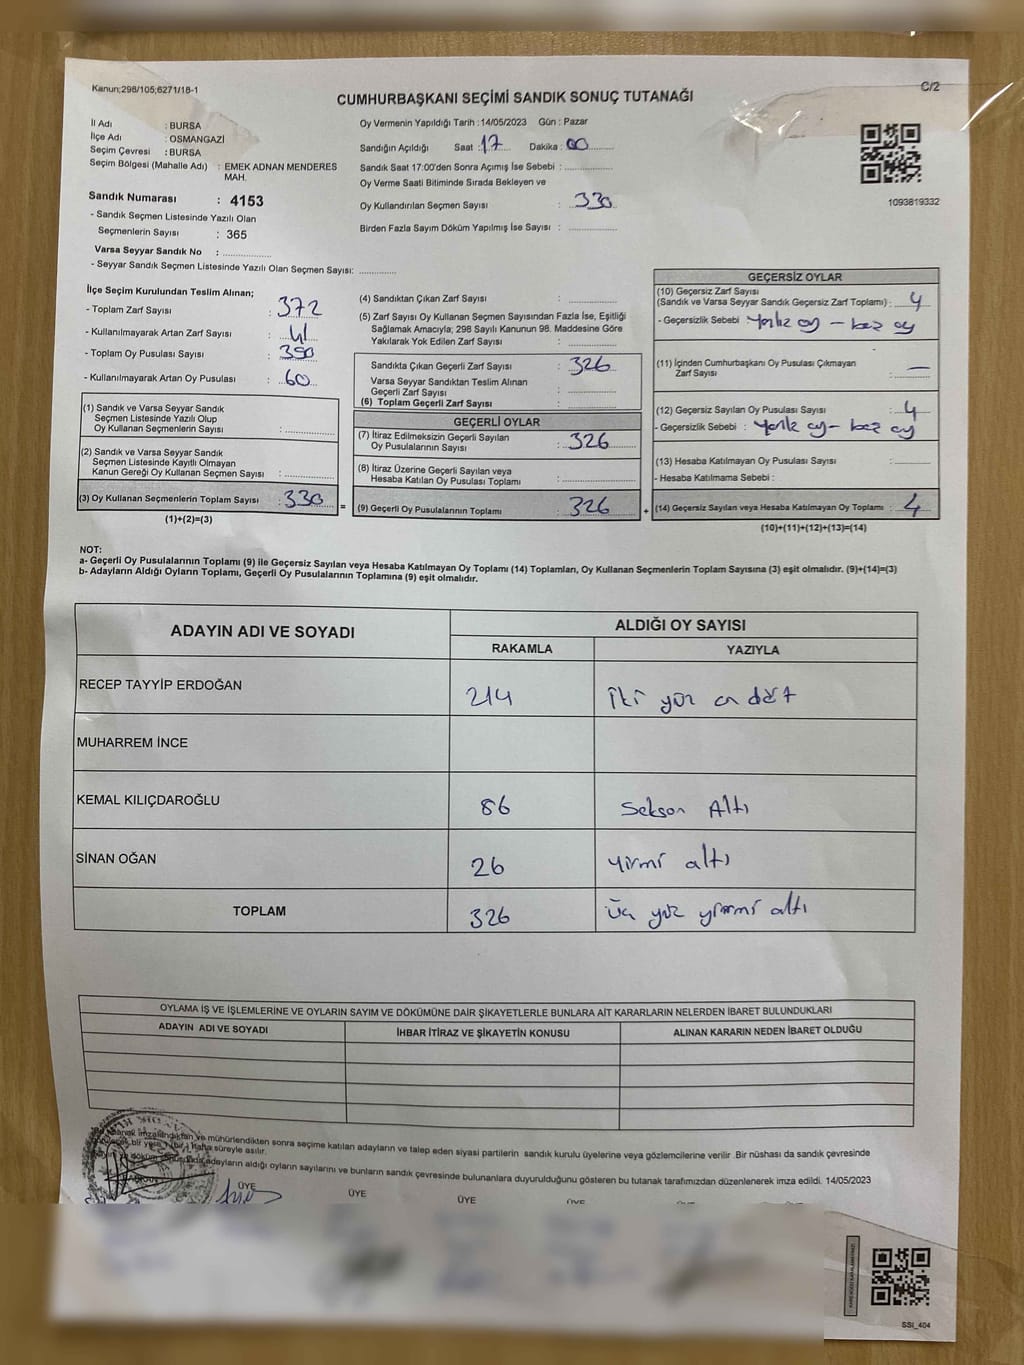 Kanun;298/105;6271/18-1
C/2
CUMHURBAŞKANI SEÇİMİ SANDIK SONUÇ TUTANAĞI
İl Adı : BURSA
İlçe Adı : OSMANGAZİ
Seçim Çevresi : BURSA
Seçim Bölgesi (Mahalle Adı) : EMEK ADNAN MENDERES
MAH.
Sandık Numarası : 4153
- Sandık Seçmen Listesinde Yazılı Olan
Seçmenlerin Sayısı : 365
Varsa Seyyar Sandık No : ..............
- Seyyar Sandık Seçmen Listesinde Yazılı Olan Seçmen Sayısı: ............
Oy Vermenin Yapıldığı Tarih : 14/05/2023 Gün : Pazar
Sandığın Açıldığı Saat : 17 Dakika : 00
Sandık Saat 17:00'den Sonra Açımış İse Sebebi : ..............
Oy Verme Saati Bitiminde Sırada Bekleyen ve
Oy Kullandırılan Seçmen Sayısı : 330
Birden Fazla Sayım Döküm Yapılmış İse Sayısı : ..............
1093819332
İlçe Seçim Kurulundan Teslim Alınan;
- Toplam Zarf Sayısı : 372
- Kullanılmayarak Artan Zarf Sayısı : 41
- Toplam Oy Pusulası Sayısı : 390
- Kullanılmayarak Artan Oy Pusulası : 60
(1) Sandık ve Varsa Seyyar Sandık
Seçmen Listesinde Yazılı Olup
Oy Kullanan Seçmenlerin Sayısı : ..............
(2) Sandık ve Varsa Seyyar Sandık
Seçmen Listesinde Kayıtlı Olmayan
Kanun Gereği Oy Kullanan Seçmen Sayısı : ..............
(3) Oy Kullanan Seçmenlerin Toplam Sayısı : 330 =
(1)+(2)=(3)
(4) Sandıktan Çıkan Zarf Sayısı : ..............
(5) Zarf Sayısı Oy Kullanan Seçmen Sayısından Fazla İse, Eşitliği
Sağlamak Amacıyla; 298 Sayılı Kanunun 98. Maddesine Göre
Yakılarak Yok Edilen Zarf Sayısı : ..............
Sandıkta Çıkan Geçerli Zarf Sayısı : 326
Varsa Seyyar Sandıktan Teslim Alınan
Geçerli Zarf Sayısı : ..............
(6) Toplam Geçerli Zarf Sayısı : ..............
GEÇERLİ OYLAR
(7) İtiraz Edilmeksizin Geçerli Sayılan
Oy Pusulalarının Sayısı : 326
(8) İtiraz Üzerine Geçerli Sayılan veya
Hesaba Katılan Oy Pusulası Toplamı : ..............
(9) Geçerli Oy Pusulalarının Toplamı : 326 +
GEÇERSİZ OYLAR
(10) Geçersiz Zarf Sayısı
(Sandık ve Varsa Seyyar Sandık Geçersiz Zarf Toplamı) : 4
- Geçersizlik Sebebi : oy - boz oy
(11) İçinden Cumhurbaşkanı Oy Pusulası Çıkmayan
Zarf Sayısı : —
(12) Geçersiz Sayılan Oy Pusulası Sayısı : 4
- Geçersizlik Sebebi : oy - boz oy
(13) Hesaba Katılmayan Oy Pusulası Sayısı : ..............
- Hesaba Katılmama Sebebi :
(14) Geçersiz Sayılan veya Hesaba Katılmayan Oy Toplamı : 4
(10)+(11)+(12)+(13)=(14)
NOT:
a- Geçerli Oy Pusulalarının Toplamı (9) ile Geçersiz Sayılan veya Hesaba Katılmayan Oy Toplamı (14) Toplamları, Oy Kullanan Seçmenlerin Toplam Sayısına (3) eşit olmalıdır. (9)+(14)=(3)
b- Adayların Aldığı Oyların Toplamı, Geçerli Oy Pusulalarının Toplamına (9) eşit olmalıdır.
ADAYIN ADI VE SOYADI
ALDIĞI OY SAYISI
RAKAMLA YAZIYLA
RECEP TAYYİP ERDOĞAN 214 iki yüz on dört
MUHARREM İNCE
KEMAL KILIÇDAROĞLU 86 Seksen Altı
SİNAN OĞAN 26 yirmi altı
TOPLAM 326 üç yüz yirmi altı
OYLAMA İŞ VE İŞLEMLERİNE VE OYLARIN SAYIM VE DÖKÜMÜNE DAİR ŞİKAYETLERLE BUNLARA AİT KARARLARIN NELERDEN İBARET BULUNDUKLARI
ADAYIN ADI VE SOYADI İHBAR İTİRAZ VE ŞİKAYETİN KONUSU ALINAN KARARIN NEDEN İBARET OLDUĞU
imzalandıktan ve mühürlendikten sonra seçime katılan adayların ve talep eden siyasi partilerin sandık kurulu üyelerine veya gözlemcilerine verilir .Bir nüshası da sandık çevresinde
bir yere 1 (bir ) hafta süreyle asılır.
adayların aldığı oyların sayılarını ve bunların sandık çevresinde bulunanlara duyurulduğunu gösteren bu tutanak tarafımızdan düzenlenerek imza edildi. 14/05/2023
ÜYE ÜYE ÜYE ÜYE
SSI_404